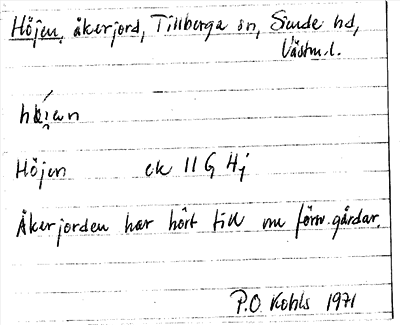 Höjen, åkerjord, Tillberga sn, Siende hd,
Västm.l.
Höjen ek 11 G 4j
Åkerjorden har hört till nu förv. gårdar.
P.O. Kohls 1971